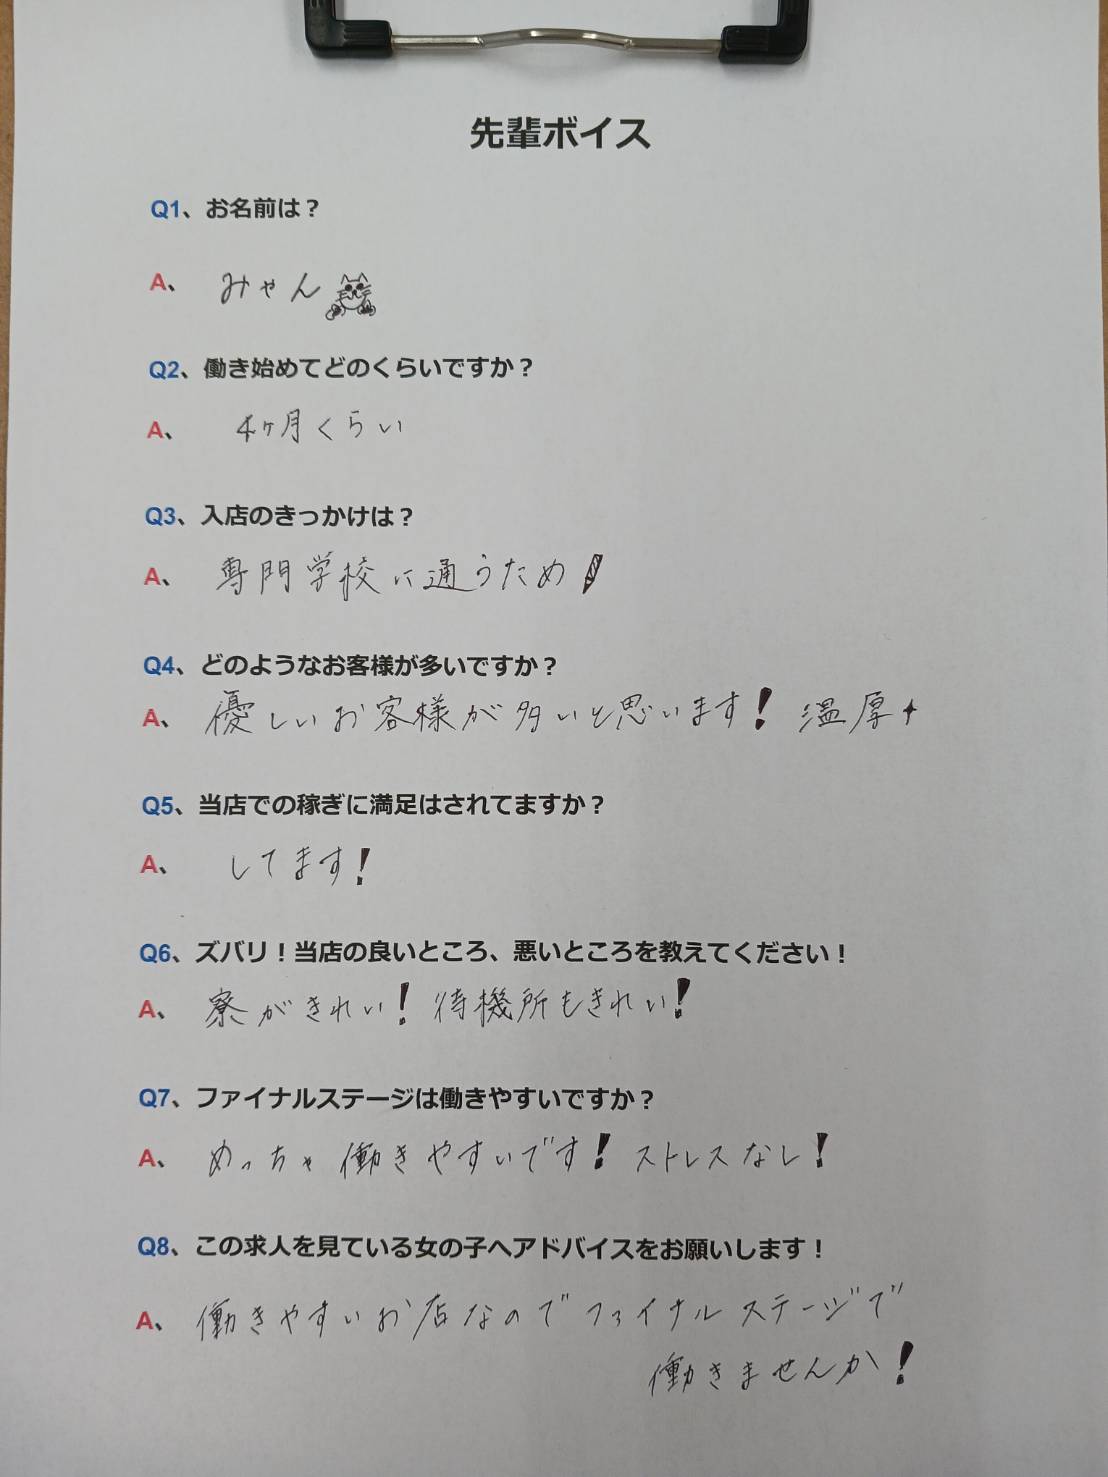 先輩ボイス
Q1、お名前は？
A、 みゃん
Q2、働き始めてどのくらいですか？
A、 4ヶ月くらい
Q3、入店のきっかけは？
A、 専門学校に通うため
Q4、どのようなお客様が多いですか？
A、 優しいお客様が多いと思います！ 温厚
Q5、当店での稼ぎに満足はされてますか？
A、 してます！
Q6、ズバリ！当店の良いところ、悪いところを教えてください！
A、 寮がきれい！ 待機所もきれい！
Q7、ファイナルステージは働きやすいですか？
A、 めっちゃ働きやすいです！ ストレスなし！
Q8、この求人を見ている女の子へアドバイスをお願いします！
A、 働きやすいお店なのでファイナルステージで
働きませんか！